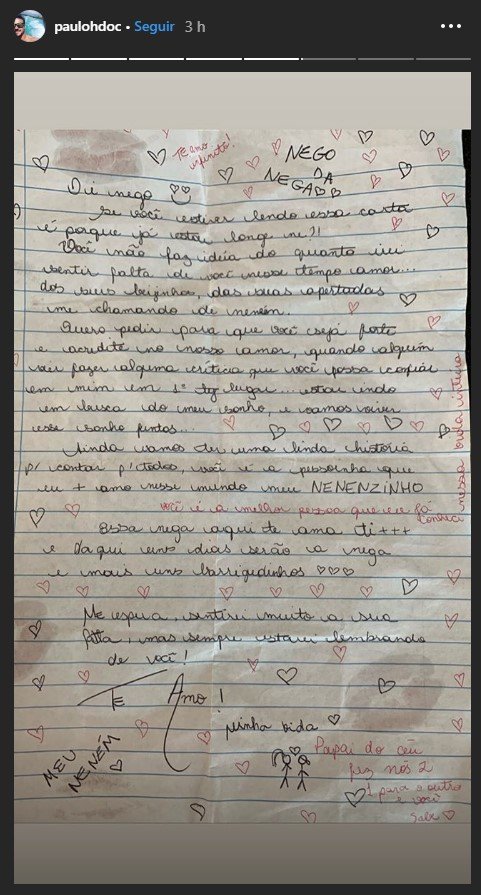 paulohdoc • Seguir 3 h
Te amo
infinito!
NEGO
DA
NEGA
Oi nego
Se você estiver lendo essa carta
é porque já estou longe né?!
Você não faz ideia do quanto irei
sentir falta de você nesse tempo amor...
dos seus beijinhos, das suas apertadas
me chamando de neném.
Quero pedir para que você seja forte
e acredite no nosso amor, quando alguém
vier fazer alguma crítica que você possa confiar
em mim em 1º lugar... estou indo
em busca do meu sonho, e vamos viver
esse sonho juntos...
Ainda vamos ter uma linda história
p/ contar p/ todos, você é a pessoinha que
eu + amo nesse mundo meu NENENZINHO
você é a melhor pessoa que eu já
conheci nessa vida inteira
Essa nega aqui te ama ti+++
e daqui uns dias serão a nega
e mais uns barrigudinhos
Me espera, sentirei muito a sua
falta, mas sempre estarei lembrando
de você!
TE Amo!
minha vida
MEU
NENÉM
Papai do céu
fez nós 2
1 para o outro
e você
sabe